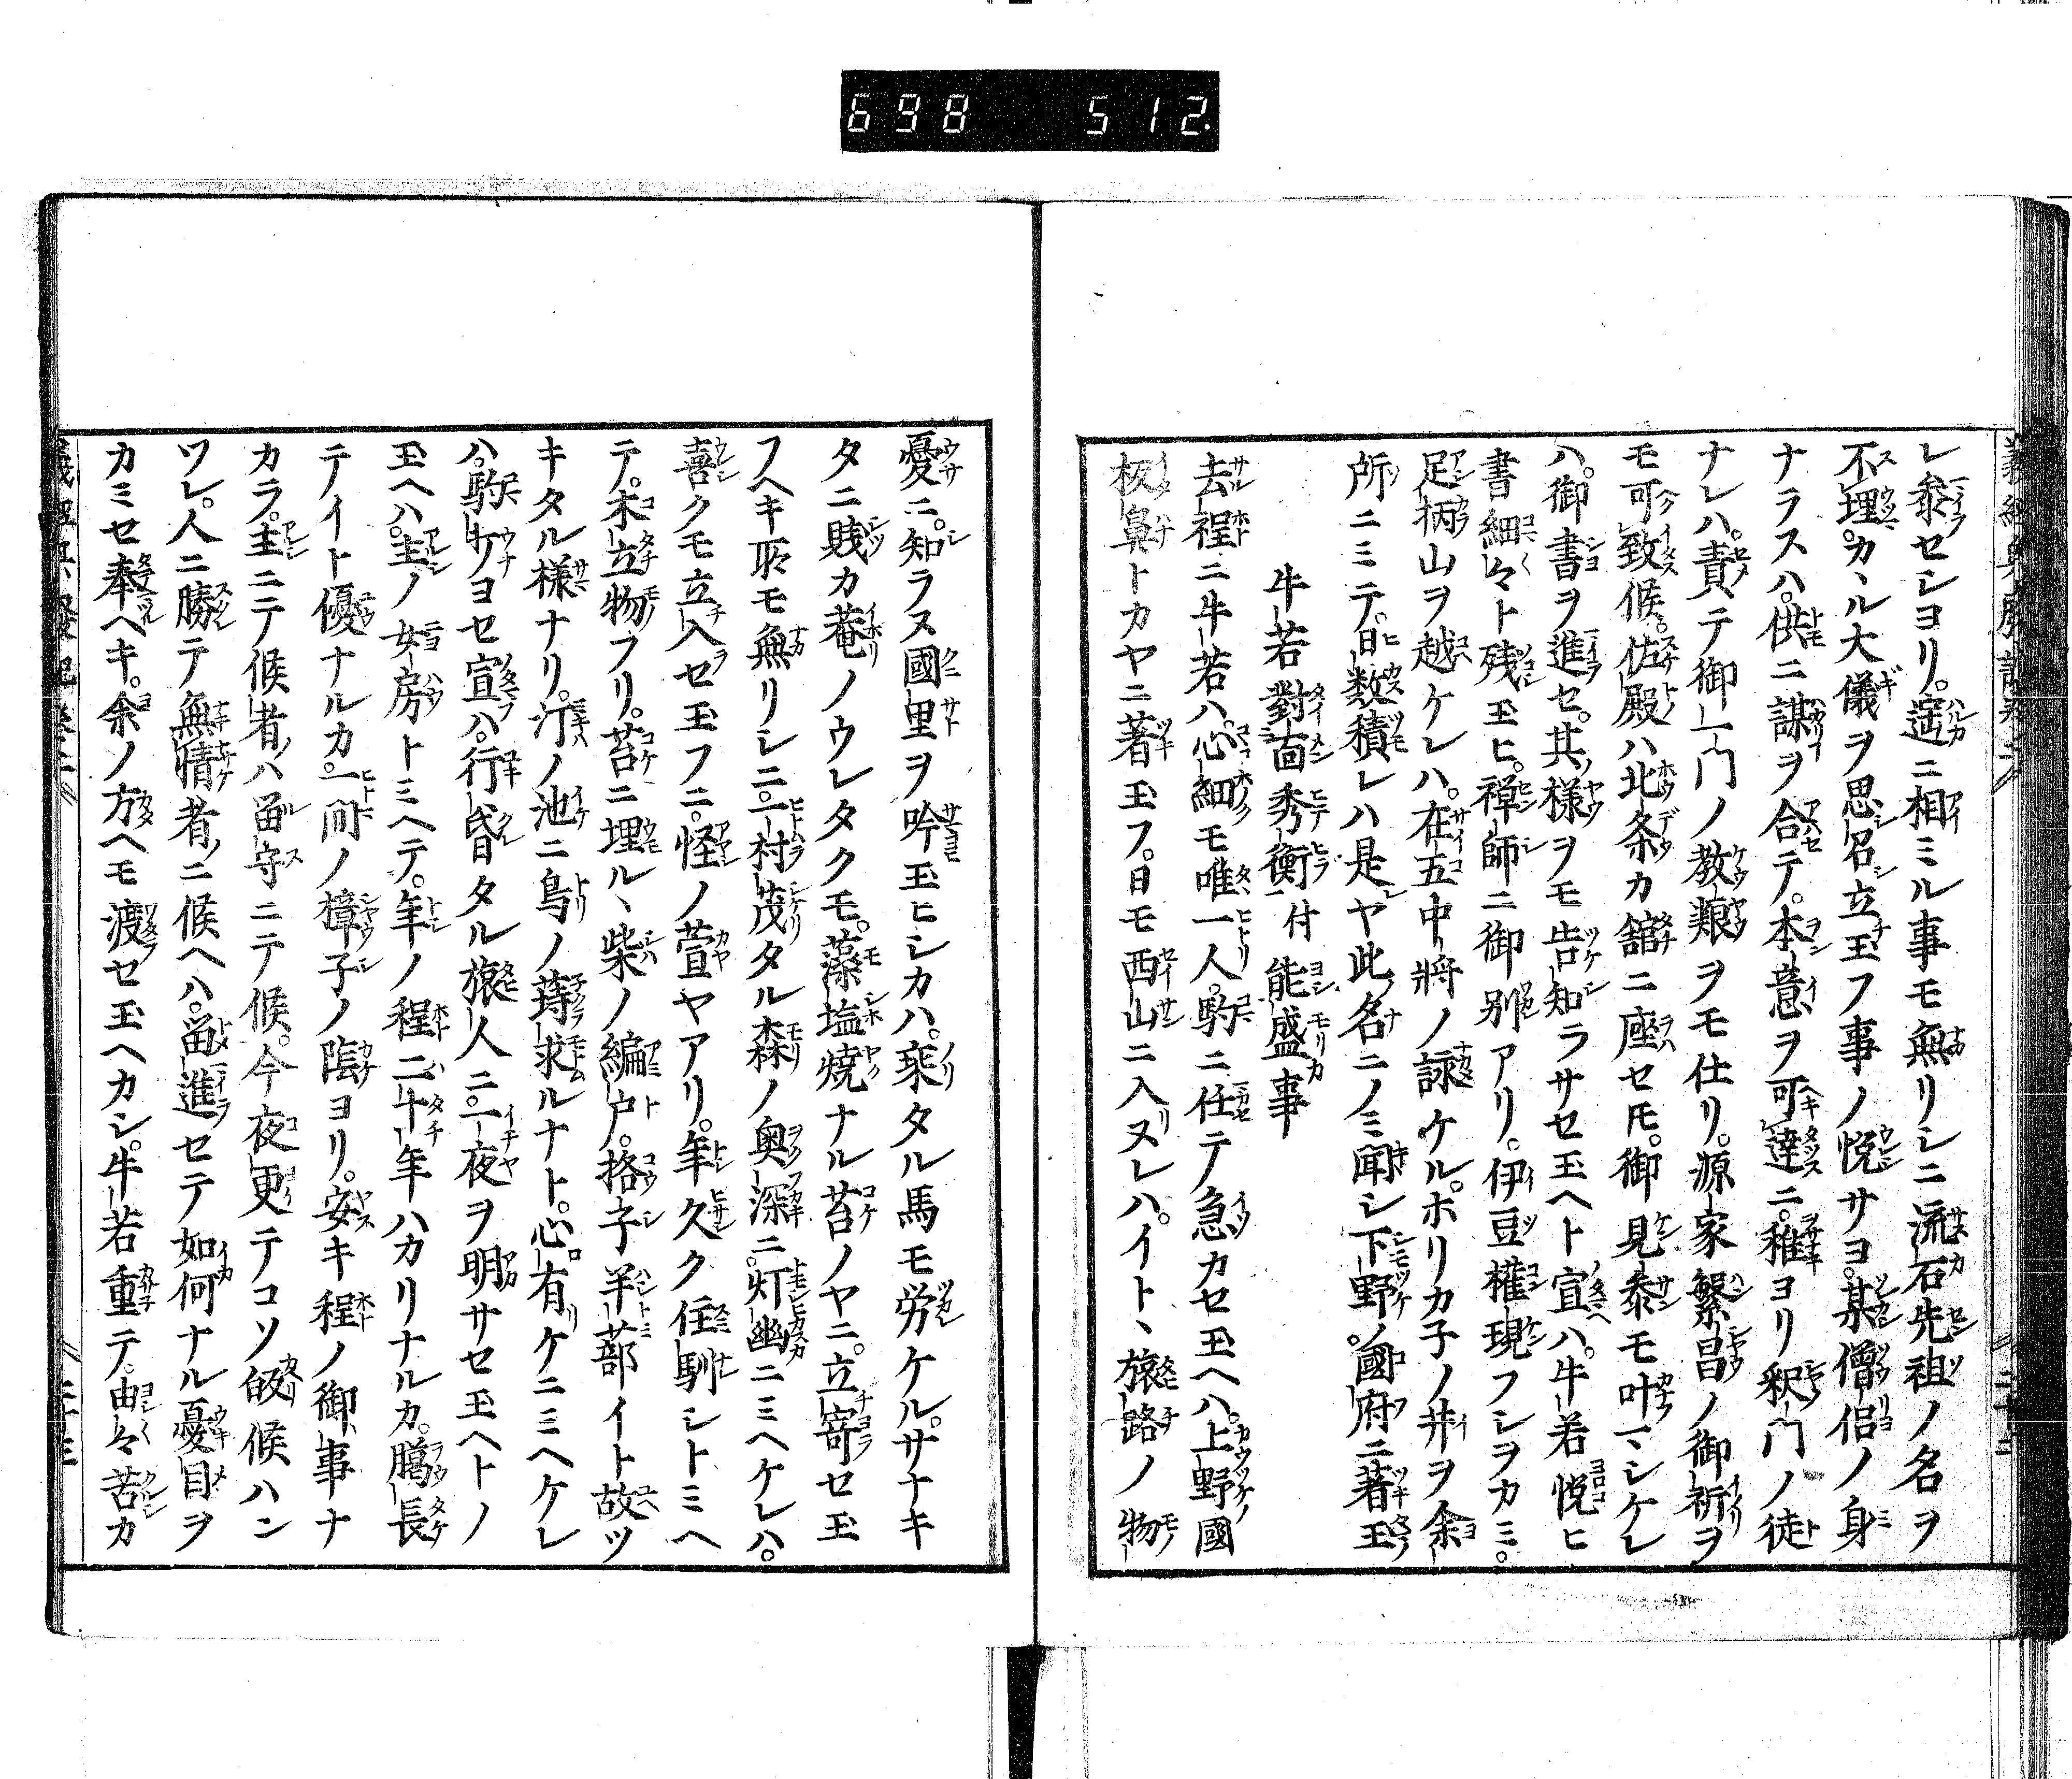 698 512.
レ泰セシヨリ。遥ニ相ミル事モ無リシニ流石先祖ノ名ヲ
不埋。カヽル大儀ヲ思召立玉フ事ノ悦サヨ。某僧侶ノ身
ナラスハ。供ニ謀ヲ合テ。本意ヲ可達ニ。稚ヨリ釈門ノ徒
ナレハ。責テ御一門ノ教難ヲモ仕リ。源家繁昌ノ御祈ヲ
モ可致候。佐殿ハ北条カ舘ニ座セ𪜈。御見参モ叶マシケレ
ハ。御書ヲ進セ。其様ヲモ告知ラサセ玉ヘト宣ハ。牛若悦ヒ
書細々ト残玉ヒ。禅師ニ御別アリ。伊豆権現フシヲカミ。
足柄山ヲ越ケレハ。在五中将ノ詠ケルホリカ子ノ井ヲ余
所ニミテ。日数積レハ是ヤ此名ニノミ聞シ下野ノ國府ニ著玉
牛若對面秀衡付能盛事
去程ニ牛若ハ。心細モ唯一人。駒ニ任テ急カセ玉ヘハ。上野國
板鼻トカヤニ著玉フ。日モ西山ニ入ヌレハ。イトヽ旅路ノ物
憂ニ。知ラヌ國里ヲ吟玉ヒシカハ。乗タル馬モ労ケル。サナキ
タニ賤カ菴ノウレタクモ。藻塩焼ナル苔ノヤニ。立寄セ玉
フヘキ㪽モ無リシニ。一村茂タル森ノ奥深ニ。灯幽ニミヘケレハ。
喜クモ立入セ玉フニ。怪ノ萱ヤアリ。年久ク住馴シトミヘ
テ。木立物フリ。苔ニ埋ルヽ柴ノ編戸。格子半蔀イト故ツ
キタル様ナリ。汀ノ池ニ鳥ノ蒋求ルナト。心有ケニミヘケレ
ハ。駒打ヨセ宣ハ。行昏タル旅人ニ。一夜ヲ明サセ玉ヘトノ
玉ヘハ。主ノ女房トミヘテ。年ノ程二十年ハカリナルカ。﨟長
テイト優ナルカ。一間ノ樟子ノ陰ヨリ。安キ程ノ御事ナ
カラ。主ニテ候者ノハ留守ニテ候。今夜更テコソ皈候ハン
ツレ。人ニ勝テ無情者ニ候ヘハ。留進セテ如何ナル憂目ヲ
カミセ奉ヘキ。余ノ方ヘモ渡セ玉ヘカシ。牛若重テ。由々苦カ